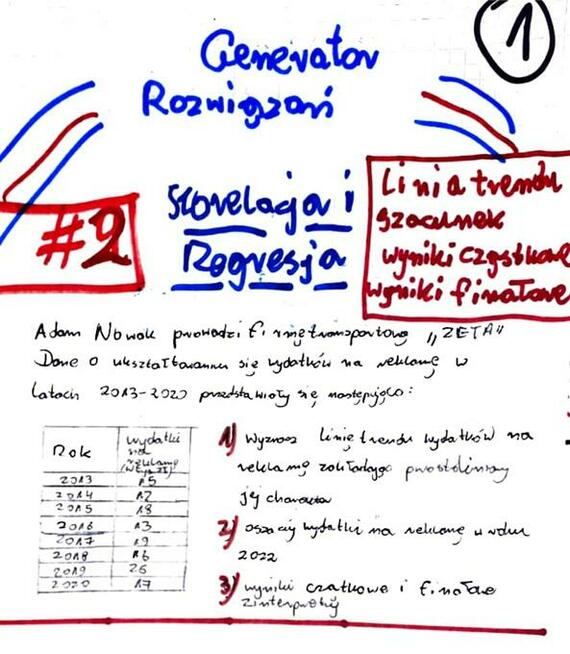 1
Generator
Rozwiązań
#2
Korelacja i
Regresja
Linia trendu
szacunek
wyniki cząstkowe
wyniki finałowe
Adam Nowak prowadzi firmę transportową „ZETA"
Dane o ukształtowaniu się wydatków na reklamę w
latach 2013-2020 przedstawiały się następująco:
Rok wydatki na reklamę (w tyś zł)
2013 15
2014 12
2015 18
2016 13
2017 19
2018 16
2019 26
2020 17
1) Wyznacz linię trendu wydatków na
reklamę zakładając prostoliniowy
jej charakter
2) oszacuj wydatki na reklamę w roku
2022
3) wyniki cząstkowe i finałowe
zinterpretuj